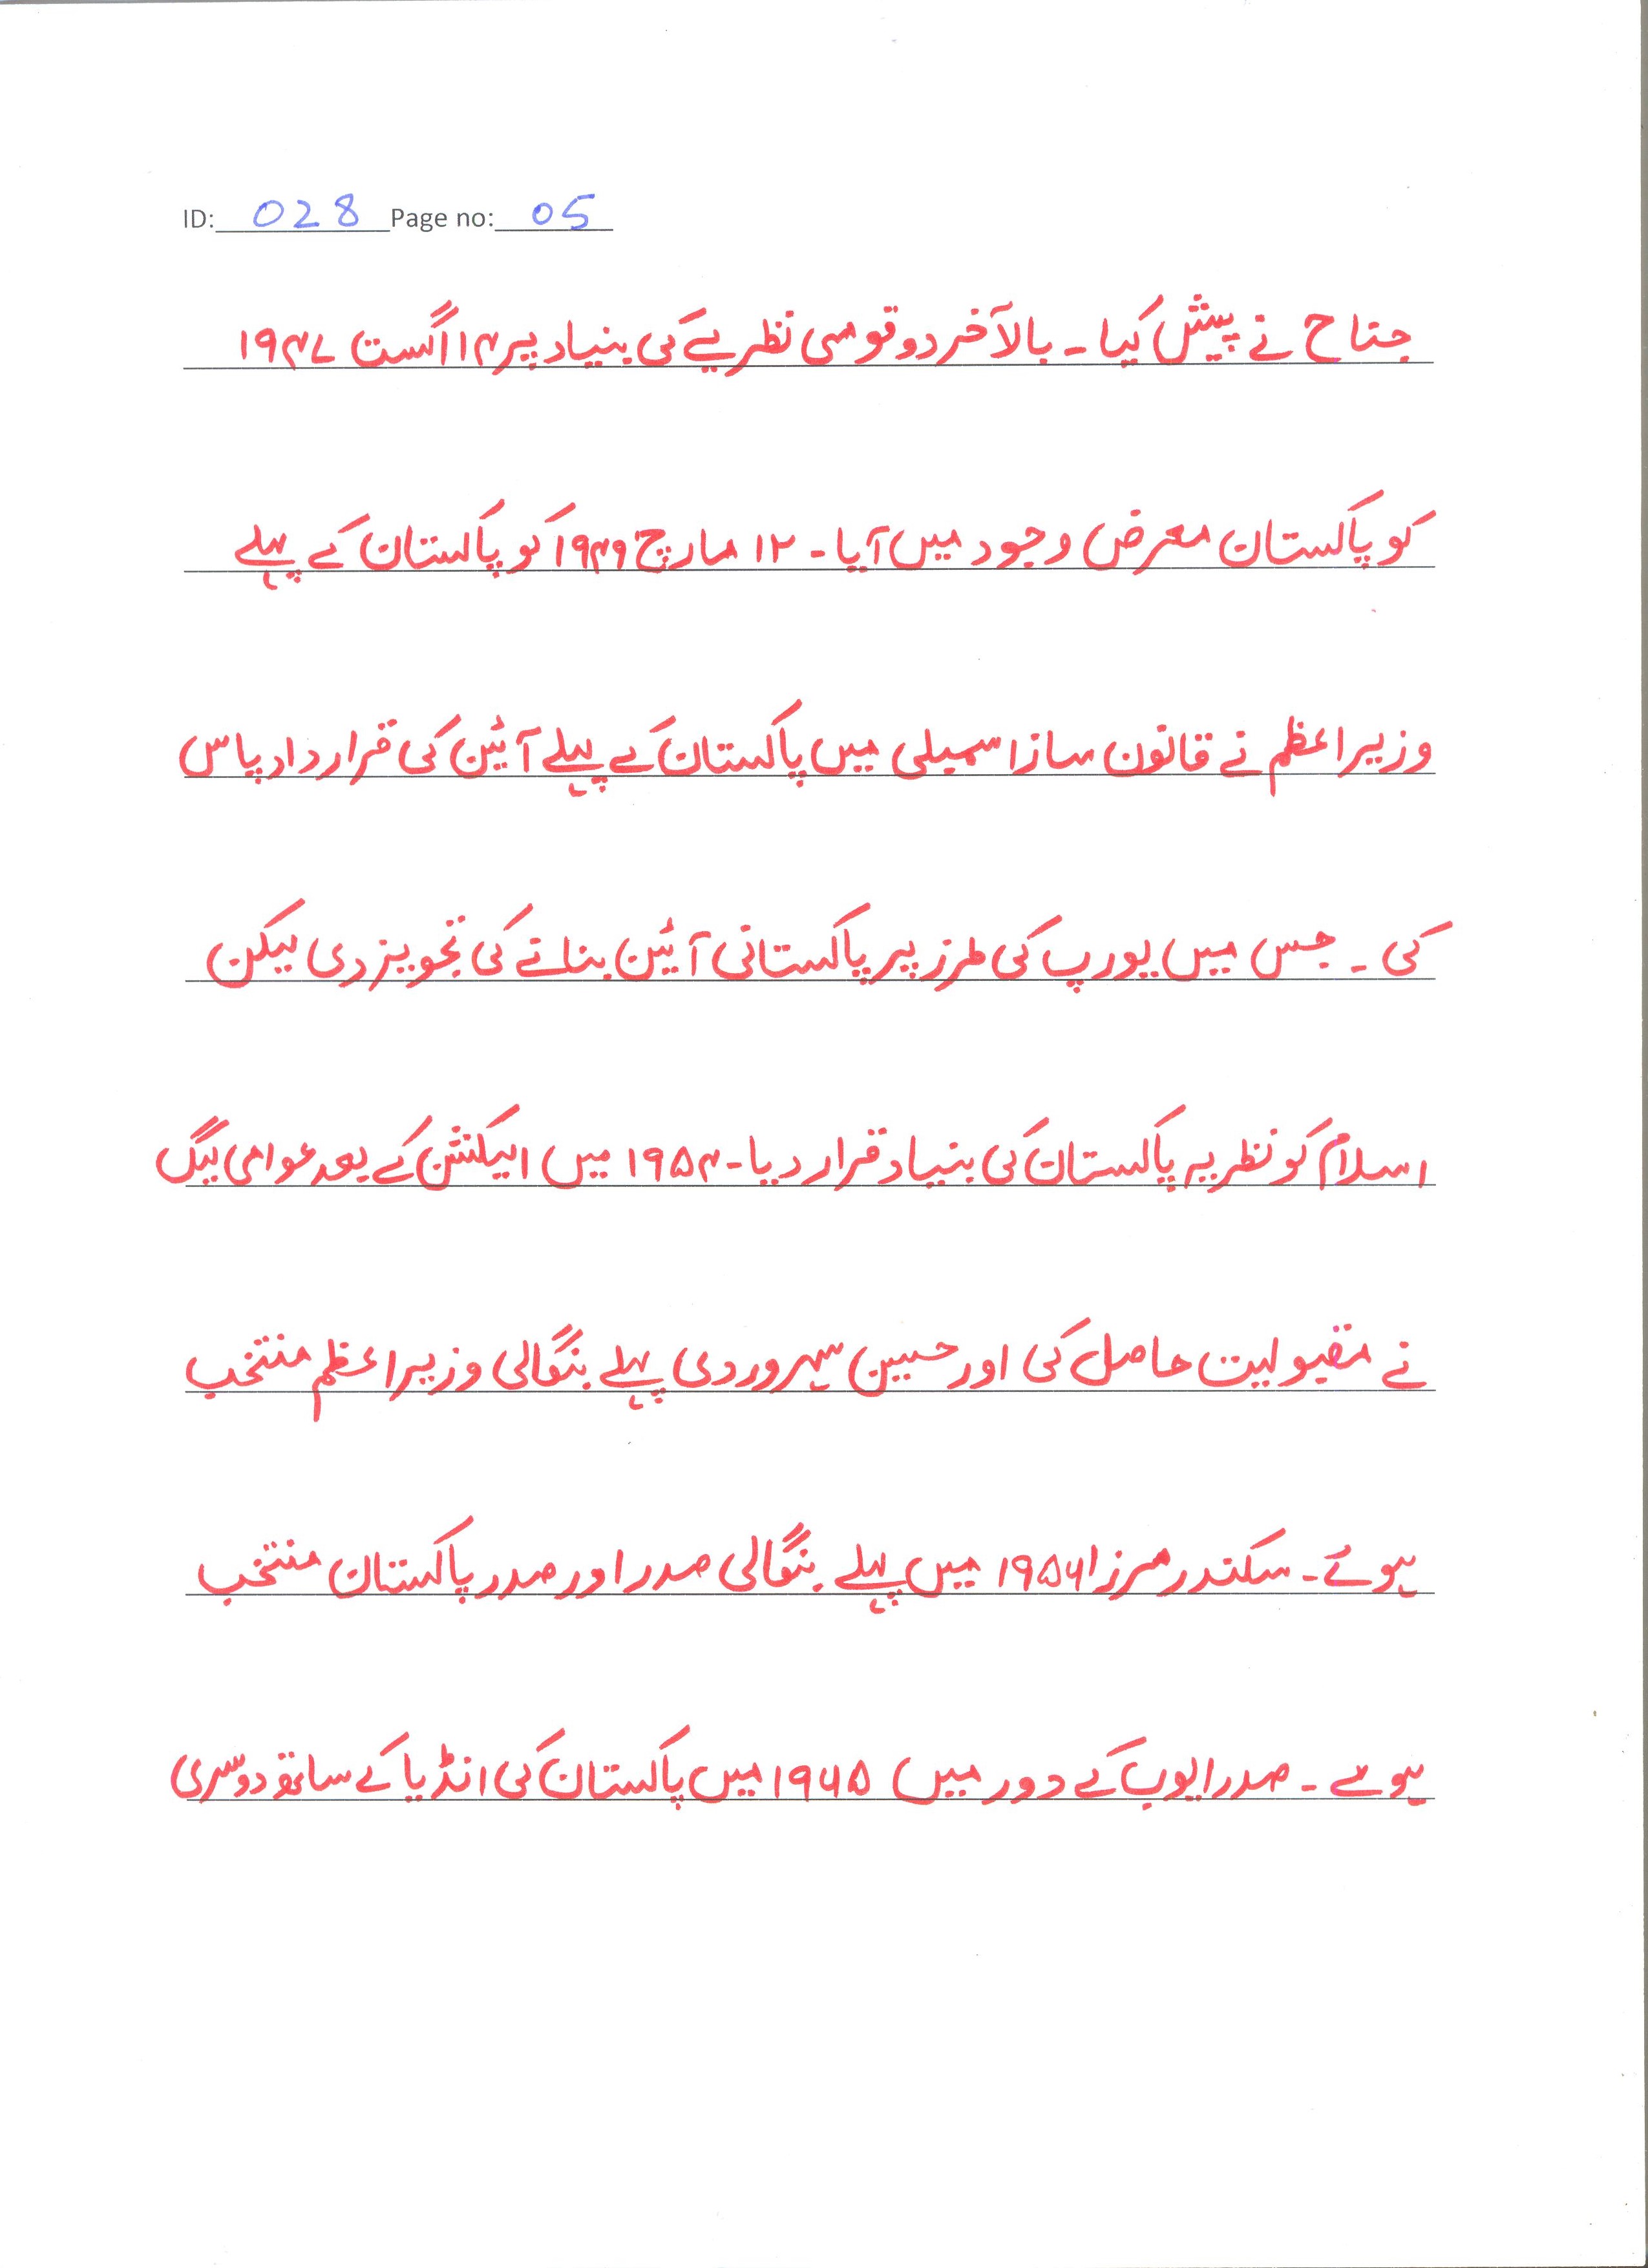 ID: 028 Page no: 05
جناح نے پیش کیا ۔ بالآخر دو قومی نظریےکی بنیاد پر ۱۴ اگست ۱۹۴۷
کو پاکستان معرض وجود میں آیا ۔ ۱۲ مارچ ۱۹۴۹ کو پاکستان کے پہلے
وزیراعظم نے قانون ساز اسمبلی میں پاکستان کے پہلے آئین کی قرارداد پاس
کی ۔ جس میں یورپ کی طرز پر پاکستانی آئین بنانے کی تجویز دی لیکن
اسلام کو نظریہ پاکستان کی بنیاد قرار دیا ۔ ۱۹۵۴ میں الیکشن کے بعد عوامی لیگ
نے مقبولیت حاصل کی اور حسین سہروردی پہلے بنگالی وزیراعظم منتخب
ہوئے ۔ سکندر مرزا ۱۹۵۶ میں پہلے بنگالی صدر اور صدر پاکستان منتخب
ہوئے ۔ صدر ایوب کے دور میں ۱۹۶۵ میں پاکستان کی انڈیا کے ساتھ دوسری